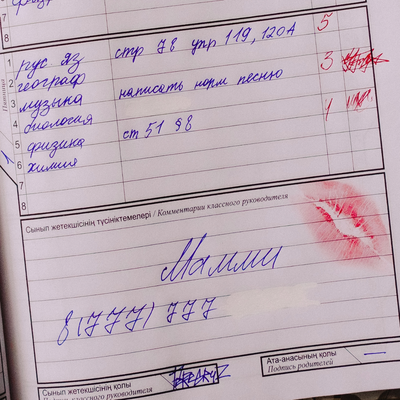 8
1 рус яз стр 78 упр 119, 120А 5
2 географ
3 музыка написать норм песню 3
4 биология
5 физика ст 51 §8 1
6 химия
7
8
Пятница
Сынып жетекшісінің түсініктемелері / Комментарии классного руководителя
Мамми
8(777) 777
Сынып жетекшісінің қолы
Подпись классного руководителя
Ата-анасының қолы
Подпись родителей